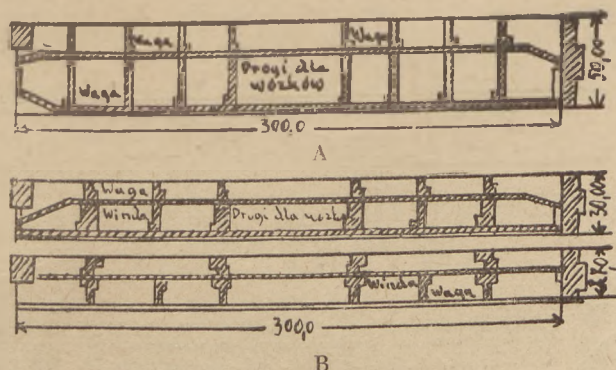 Waga Waga
Drogi dla
wózków
Waga
50,00
300,0
A
Waga
Winda Drogi dla wózk
30,00
Winda
Waga
300,0
B